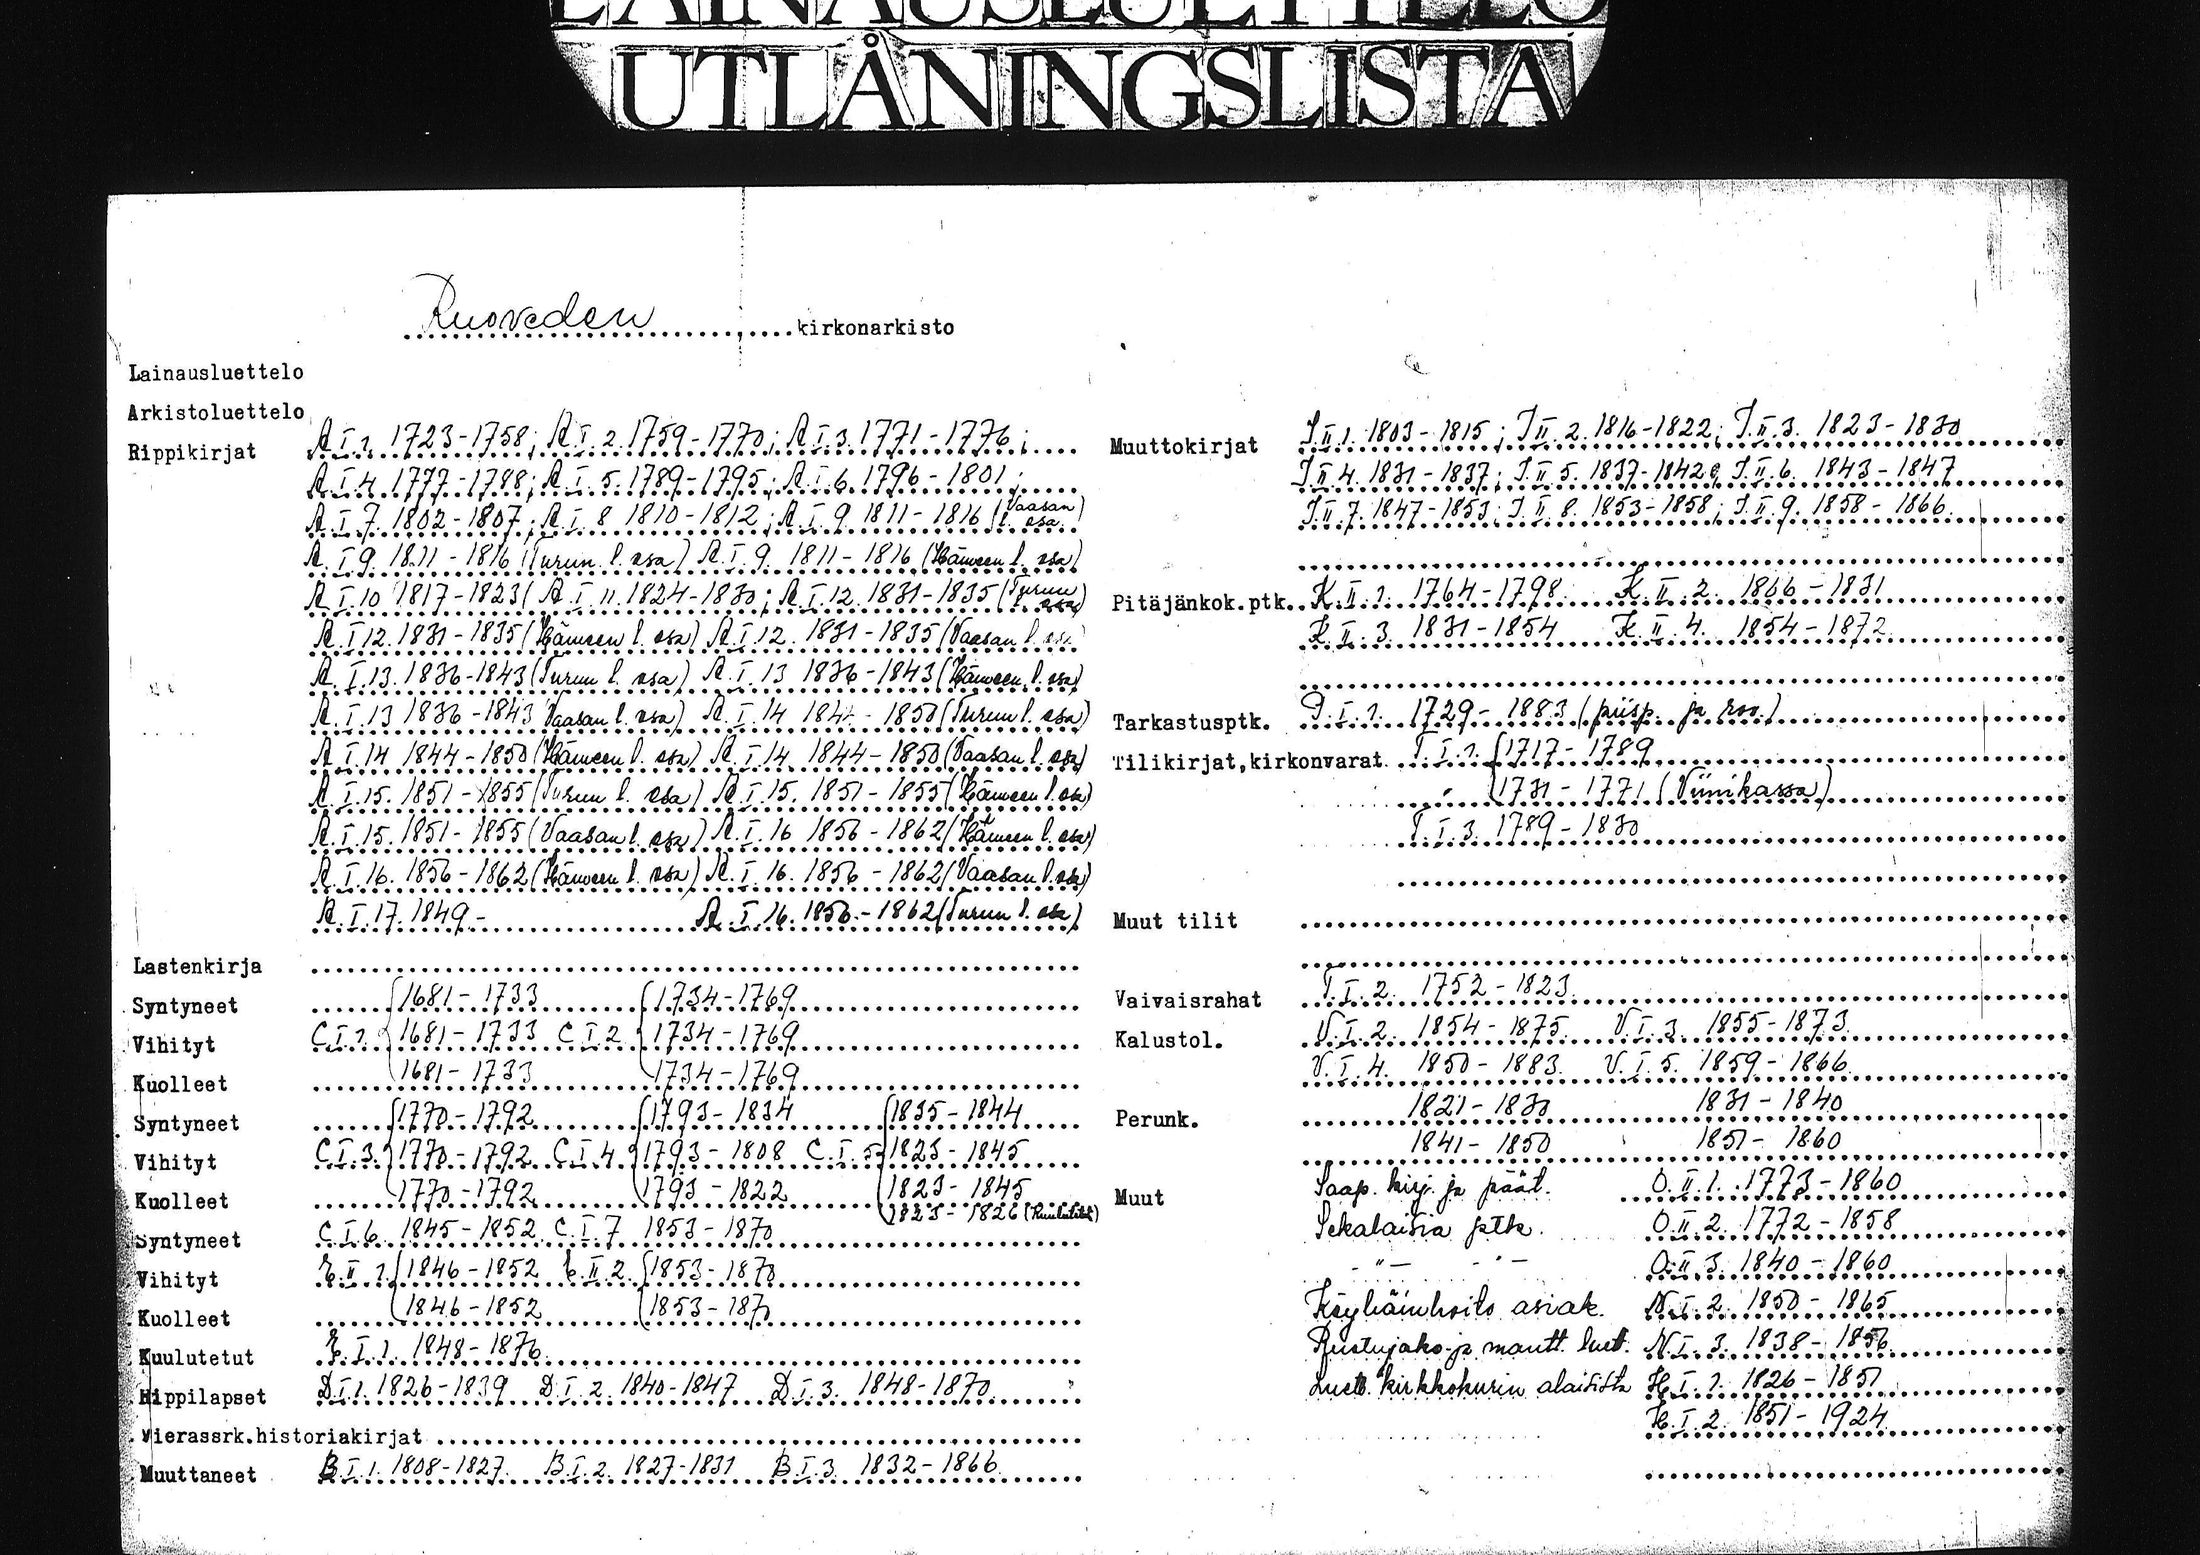 LAINAUSLUETTELO
UTLÅNINGSLISTA
Ruoveden kirkonarkisto
Lainausluettelo
Arkistoluettelo
Rippikirjat A.I.1. 1723-1758; A.I.2. 1759-1770; A.I.3. 1771-1776;
A.I.4. 1777-1788; A.I.5. 1789-1795; A.I.6. 1796-1801;
A.I.7. 1802-1807; A.I.8 1810-1812; A.I.9 1811-1816 (Vaasan l. osa)
A.I.9. 1811-1816 (Turun l. osa) A.I.9. 1811-1816 (Hämeen l. osa)
A.I.10 1817-1823( A.I.11. 1824-1830; A.I.12. 1831-1835 (Turun l. osa)
A.I.12. 1831-1835 (Hämeen l. osa) A.I.12. 1831-1835 (Vaasan l. osa
A.I.13. 1836-1843 (Turun l. osa) A.I.13 1836-1843 (Hämeen l. osa)
A.I.13 1836-1843 Vaasan l. osa) A.I.14 1844-1850 (Turun l. osa)
A.I.14 1844-1850 (Hämeen l. osa) A.I.14 1844-1850 (Vaasan l. osa)
A.I.15. 1851-1855 (Turun l. osa) A.I.15. 1851-1855 (Hämeen l. osa)
A.I.15. 1851-1855 (Vaasan l. osa) A.I.16 1856-1862 (Hämeen l. osa)
A.I.16. 1856-1862 (Hämeen l. osa) A.I.16. 1856-1862 (Vaasan l. osa)
A.I.17. 1849- A.I.16. 1856-1862 (Turun l. osa)
Lastenkirja
Syntyneet 1681-1733 1734-1769
Vihityt C.I.1. 1681-1733 C.I.2. 1734-1769
Kuolleet 1681-1733 1734-1769
Syntyneet 1770-1792 1793-1834 1835-1844
Vihityt C.I.3. 1770-1792 C.I.4. 1793-1808 C.I.5. 1823-1845
Kuolleet 1770-1792 1793-1822 1823-1845
1823-1826 (Kuulutetut)
Syntyneet C.I.6. 1845-1852 C.I.7 1853-1870
Vihityt E.II.1. 1846-1852 E.II.2. 1853-1870
Kuolleet 1846-1852 1853-187
Kuulutetut E.I.1. 1848-1876
Rippilapset D.I.1. 1826-1839 D.I.2. 1840-1847 D.I.3. 1848-1870
Vierassrk.historiakirjat
Muuttaneet B.I.1. 1808-1827. B.I.2. 1827-1831 B.I.3. 1832-1866
Muuttokirjat J.II.1. 1803-1815; J.II.2. 1816-1822; J.II.3. 1823-1830
J.II.4. 1831-1837; J.II.5. 1837-1842; J.II.6. 1843-1847
J.II.7. 1847-1853; J.II.8. 1853-1858; J.II.9. 1858-1866
Pitäjänkok.ptk. K.II.1. 1764-1798. K.II.2. 1866-1831
K.II.3. 1831-1854 K.II.4. 1854-1872
Tarkastusptk. P.I.1. 1729-1883 (piisp. ja rov.)
Tilikirjat,kirkonvarat T.I.1. 1717-1789
1731-1771 (Viinikassa)
T.I.3. 1789-1830
Muut tilit
Vaivaisrahat T.I.2. 1752-1823
Kalustol. V.I.2. 1854-1875. V.I.3. 1855-1873
V.I.4. 1850-1883. V.I.5. 1859-1866
Perunk. 1821-1830 1831-1840
1841-1850 1851-1860
Muut Saap. kirj. ja päät. O.II.1. 1773-1860
Sekalaisia ptk. O.II.2. 1772-1858
-"- -"- O.II.3. 1840-1860
Köyhäinhoito asiak. N.I.2. 1850-1865
Ruotujako ja mantt. luet. N.I.3. 1838-1856
Luett. kirkkokurin alaisista H.I.1. 1826-1851
H.I.2. 1851-1924